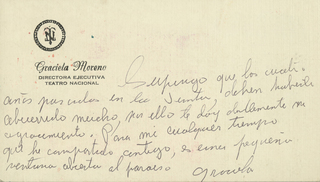 Graciela Moreno
DIRECTORA EJECUTIVA
TEATRO NACIONAL
Supongo que los cuatro
años pasados en la Junta, deben haberte
aburrido mucho, por ello te doy doblemente mi
agradecimiento. Para mí cualquier tiempo
que he compartido contigo, es una pequeña
ventana abierta al paraíso
Graciela